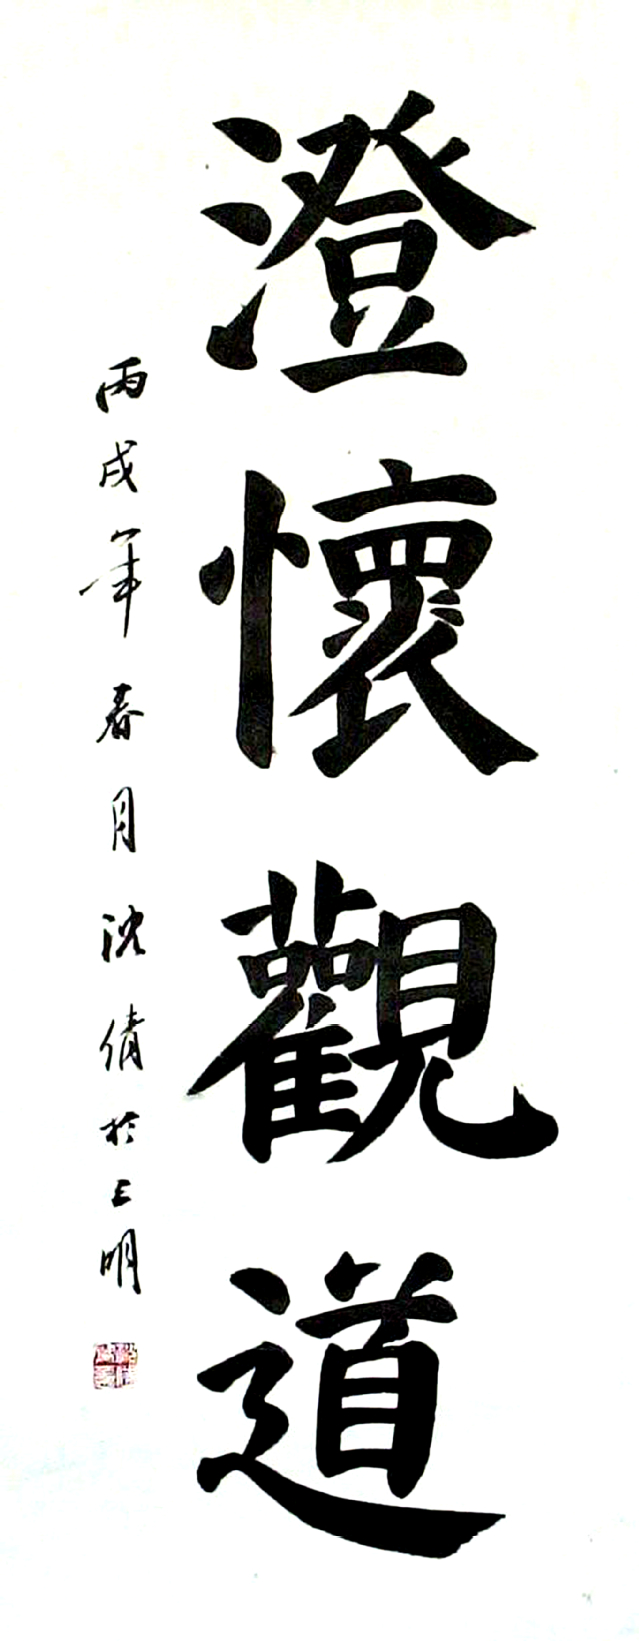 澄懷觀道
丙戌年春月沈倩於三明